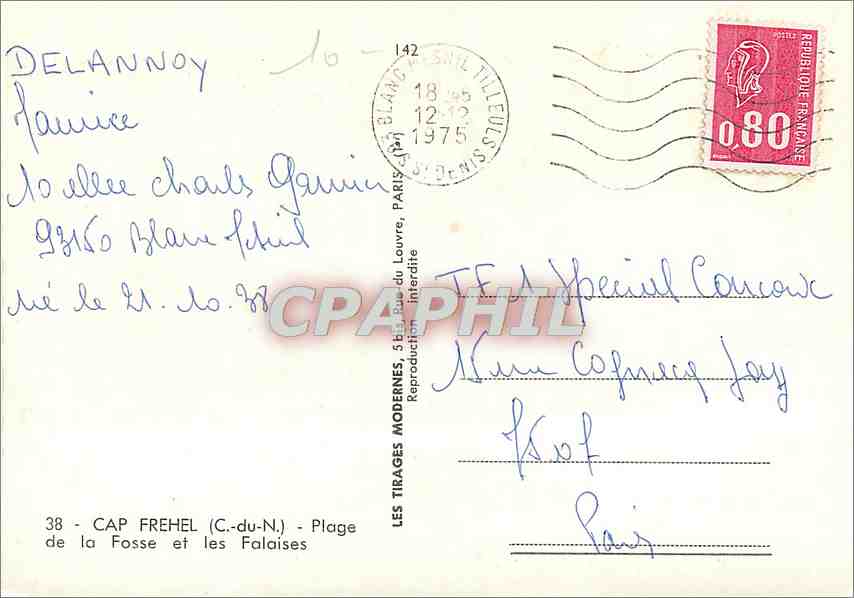 DELANNOY
Maurice
10 allée Charles Garnier
93150 Blanc Mesnil
Né le 21.10.38
10 -
142
93 BLANC MESNIL TILLEULS
18 H45
12-12
1975
SN ST DENIS
POSTES
REPUBLIQUE FRANÇAISE
0,80
TF1 Spécial Concours
15 rue Cognacq Jay
75
Paris
CPAPHIL
LES TIRAGES MODERNES, 5 bis, Rue du Louvre, PARIS
Reproduction interdite
38 - CAP FREHEL (C.-du-N.) - Plage
de la Fosse et les Falaises